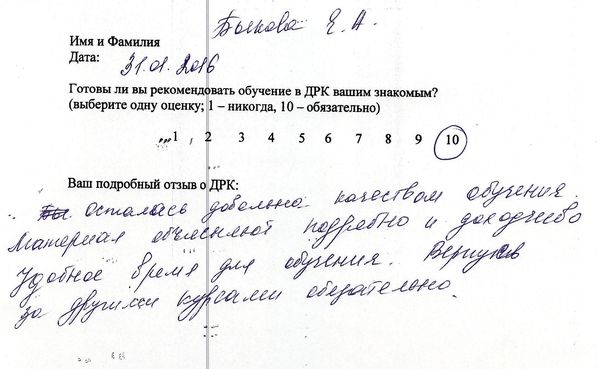 Быкова Е. А.
Имя и Фамилия
Дата: 31.01.2016
Готовы ли вы рекомендовать обучение в ДРК вашим знакомым?
(выберите одну оценку; 1 – никогда, 10 – обязательно)
1 2 3 4 5 6 7 8 9 10
Ваш подробный отзыв о ДРК:
Осталась довольна качеством обучения.
Материал объясняют подробно и доходчиво
Удобное время для обучения. Вернусь
за другими курсами обязательно.